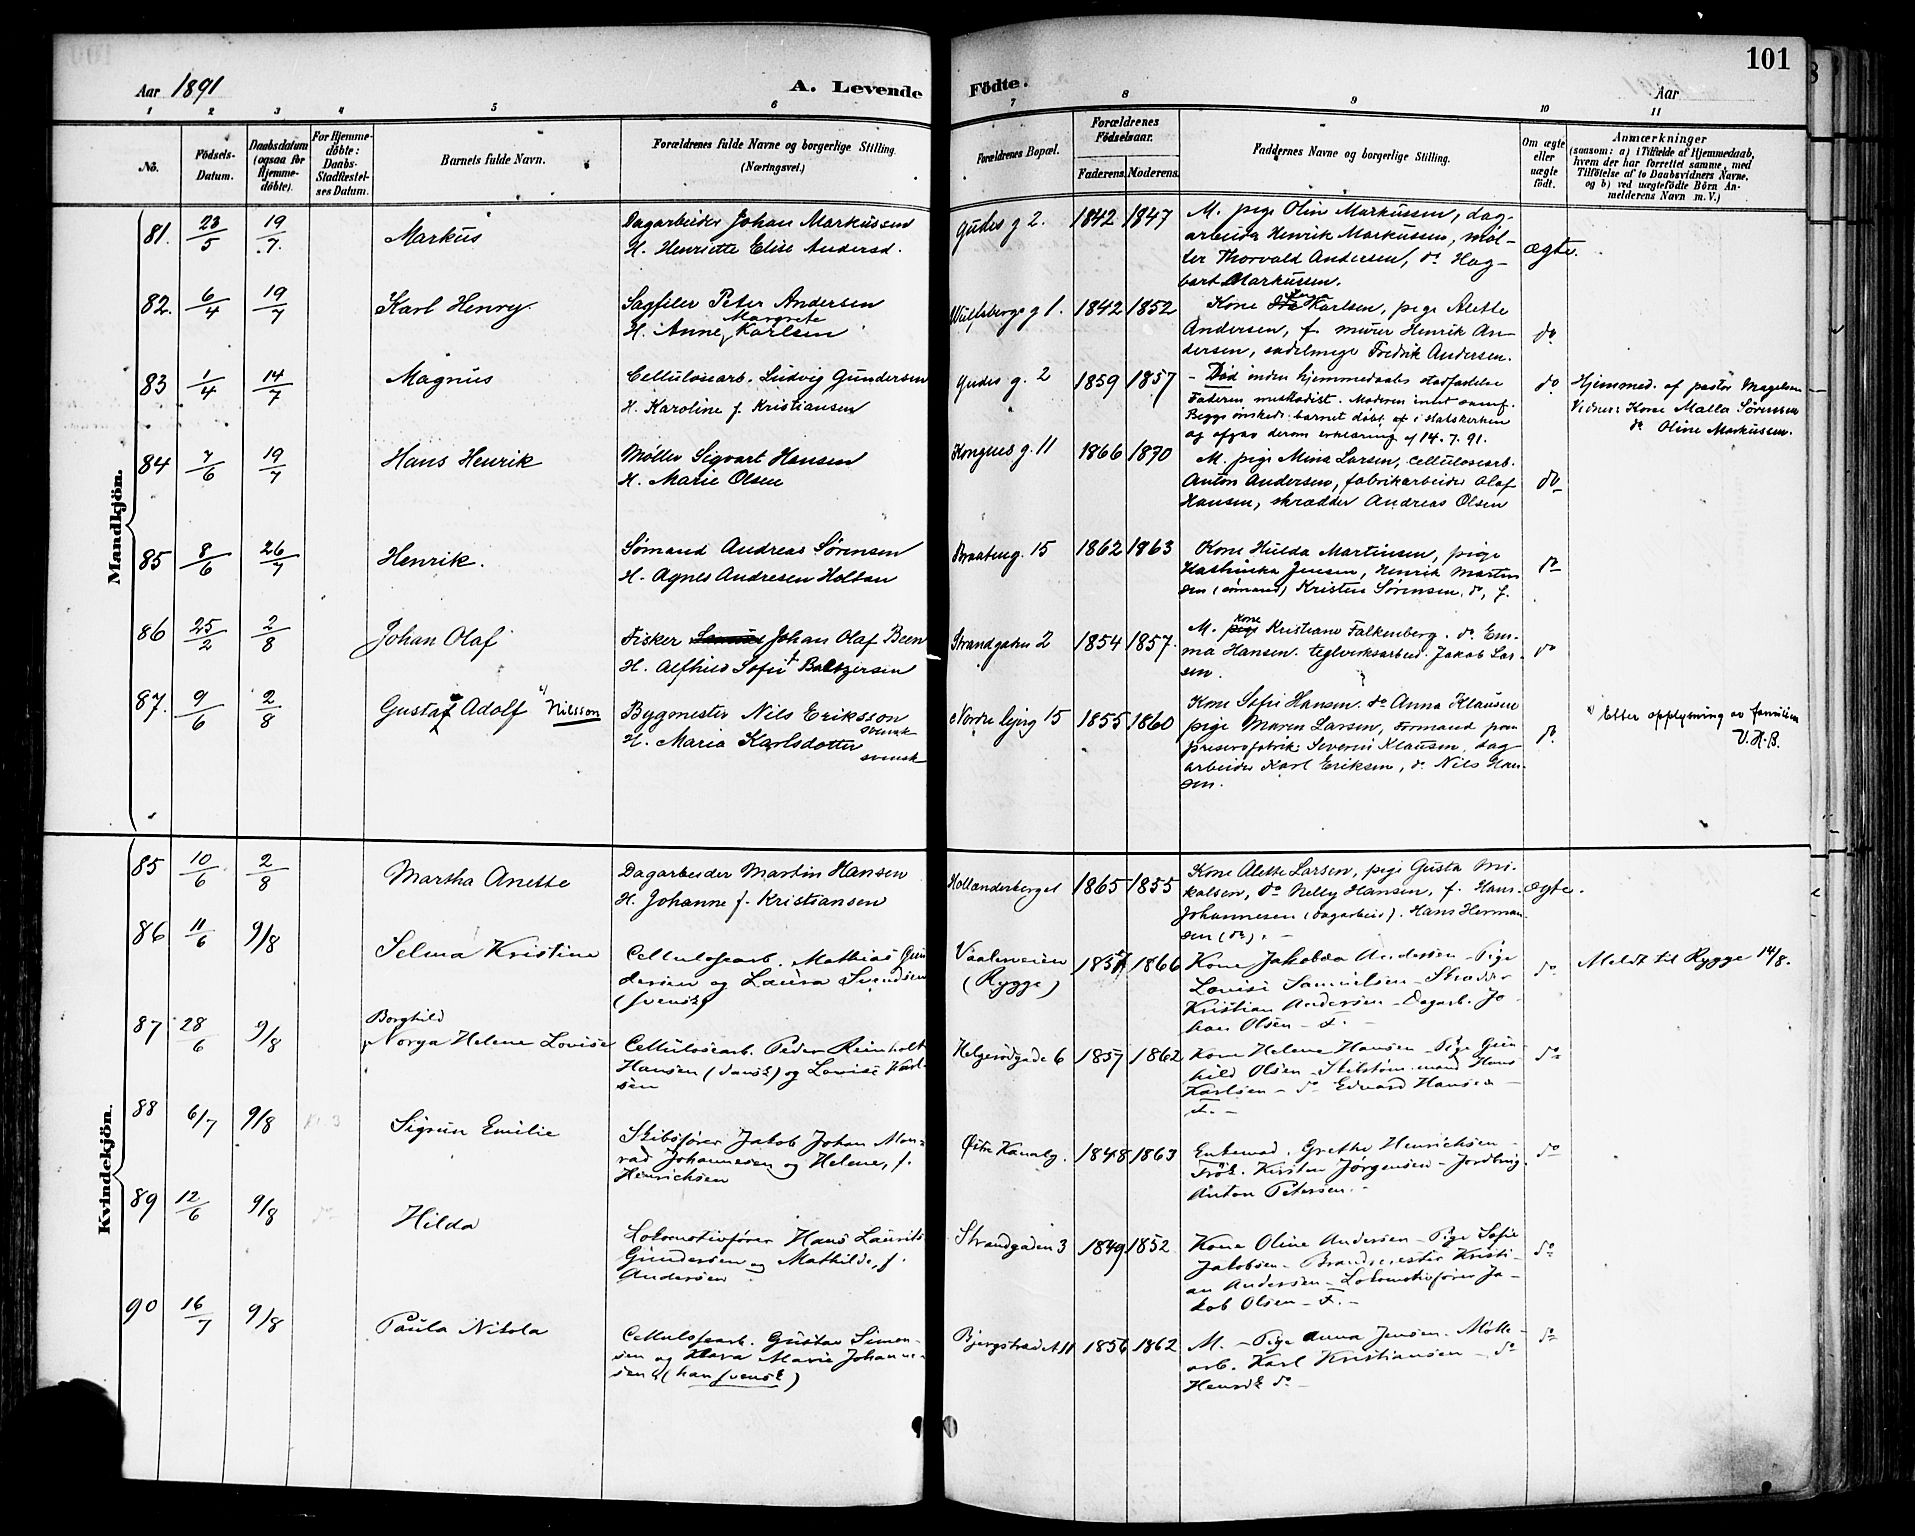 101
Aar 1891
A. Levende
Födte.
Aar
1 2 3 4 5 6 7 8 9 10 11
No.
Födsels-Datum.
Daabsdatum (ogsaa for Hjemmedöbte).
For Hjemmedöbte: Daabs-Stadfæstelses Datum.
Barnets fulde Navn.
Forældrenes fulde Navne og borgerlige Stilling.
(Næringsvei.)
Forældrenes Bopæl.
Forældrenes Födselsaar.
Faderens. Moderens.
Faddernes Navne og borgerlige Stilling.
Om ægte eller uægte födt.
Anmærkninger
(saasom: a) i Tilfælde af Hjemmedaab, hvem der har forrettet samme, med Tilföielse af to Daabsvidners Navne, og b) ved uægtefödte Börn Anmelderens Navn m. V.)
Mandkjön.
81. 23/5 19/7. Markus
Dagarbeider Johan Markussen
H. Henriette Elise Andersd.
Gudes g 2. 1842 1847
M. pige Olin Markussen, dag-
arbeider Henrik Markussen, møl-
ler Thorvald Andersen, do Hag-
bart Markussen.
ægte.
82. 6/4 19/7 Karl Henry
Sagfiler Peter Andersen
H. Anne Margrete Karlsen
Wulfsbergs g 1. 1842 1852
Kone Karlsen, pige Alette
Andersen, f. murer Henrik An-
dersen, sadelmager Fredrik Andersen.
do
83 1/4 14/7 Magnus
Cellulosearb. Ludvig Gundersen
H. Karoline f. Kristiansen
Gudes g. 2 1859 1857
- Død inden hjemmedaabs stadfæstelse
Faderen methodist. Moderen intet samf.
Begge ønskede barnet døbt i Statskirken
og afgav derom erklæring af 14.7.91.
do
Hjemmed. af pastor Magelsen
Vidner: Kone Malla Sørensen
do Oline Markussen.
84 7/6 19/7 Hans Henrik
Møller Sigvart Hansen
H. Marie Olsen
Kongens g. 11 1866 1870
M. pige Mina Larsen, cellulosearb.
Anton Andersen, fabrikarbeider Olaf
Hansen, skrædder Andreas Olsen
do
85 8/6 26/7 Henrik.
Sømand Andreas Sørensen
H. Agnes Andresen Holtan
Braateng. 15 1862 1863
Kone Hulda Martinsen, pige
Jensen, Henrik Martin
sen (sømand) Kristen Sørensen, do, f.
do
86 25/2 2/8 Johan Olaf
Fisker Johan Olaf Been
H. Alfhild Sofie Baltzersen
Strandgaten 2 1854 1857.
M. Kone Kristiane Falkenberg. do Em-
ma Hansen. teglverksarbeid. Jakob Lar-
sen.
do
87. 9/6 2/8 Gustaf Adolf Nilsson
Bygmester Nils Eriksson svensk
H. Maria Karlsdotter svensk
Nordre bjerg 15 1855 1860
Kone Sofie Hansen. do Anna Klausen
pige Maren Larsen, formand paa
preserv.fabrik. Severin Klausen, dag
arbeider Karl Eriksen, do Nils Han-
sen.
do
Efter opplysning av familien
V.H.B.
Kvindekjön.
85 10/6 2/8 Martha Anette
Dagarbeider Martin Hansen
H. Johanne f. Kristiansen
Hollænderberget 1865 1855
Kone Alette Larsen, pige Gusta Mi-
kalsen, do Nelly Hansen, f. Hans
Johannesen (dagarbeid). Hans Herman-
sen (do). -
ægte.
86 11/6 9/8 Selma Kristine
Cellulosearb. Mathias Gun
dersen og Laura Svendsen
(svensk)
Vaalerveien
(Rygge)
1866
Kone Jakobea Andersen - Pige
Lovise Samuelsen - Skrædder
Kristian Andersen - Dagarb. Jo-
han Olsen - F. -
do
Meldt til Rygge 14/8.
87 28/6 9/8 Borghild
Norga Helene Lovise
Cellulosearb. Peder Reinholt
Hansen (dansk) og Lovise Karl-
sen
Helgerødgade 6 1857 1862
Kone Helene Hansen - Pige Gun-
hild Olsen - Hans
Karlsen - do Edvard Hansen -
F. -
do
88 6/7 9/8 Sigrun Emilie
Skibsfører Jakob Johan Mon-
rad Johannesen og Helene, f.
Henrichsen
Østre Kanalg. 1848 1863
Enkemad. Grethe Henrichsen -
Frøk. Kirsten Jørgensen - Jordbrug.
Anton Petersen. -
do
89 12/6 9/8 Hilda
Lokomotivfører Hans Laurits
Gundersen og Mathilde, f.
Andersen
Strandgaden 3 1849 1852
Kone Oline Andersen - Pige Sofie
Jakobsen - Brandmester Kristi-
an Andersen - Lokomotivfører Ja-
kob Olsen - F. -
do
90 16/7 9/8 Paula Nikola
Cellulosearb. Gustav Simon-
sen og Klara Marie Johanne-
sen (han svensk)
Bjergstrædet 11 1856 1862
M. - Pige Anna Jensen. Mølle-
arb. Karl Kristiansen - do
Henrik do -
do